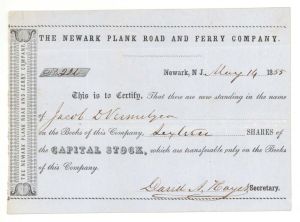 THE NEWARK PLANK ROAD AND FERRY COMPANY.
THE NEWARK PLANK ROAD AND FERRY COMPANY.
Newark, N J. May 14 1855
This is to Certify, That there are now standing in the name
of Jacob D Vermilyea
on the Books of this Company, SHARES of
the CAPITAL STOCK, which are transferable only on the Books
of this Company.
Secretary.